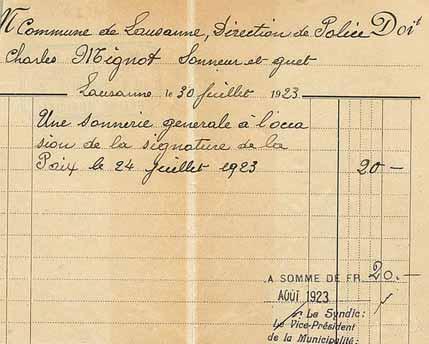 M Commune de Lausanne, Direction de Police Doit
Charles Mignot Sonneur et guet
Lausanne le 30 Juillet 1923
Une sonnerie generale a l'occa
sion de la signature de la
Paix le 24 Juillet 1923 20 —
LA SOMME DE FR. 20.—
AOÛT 1923
Le Syndic:
Le Vice-Président
de la Municipalité: